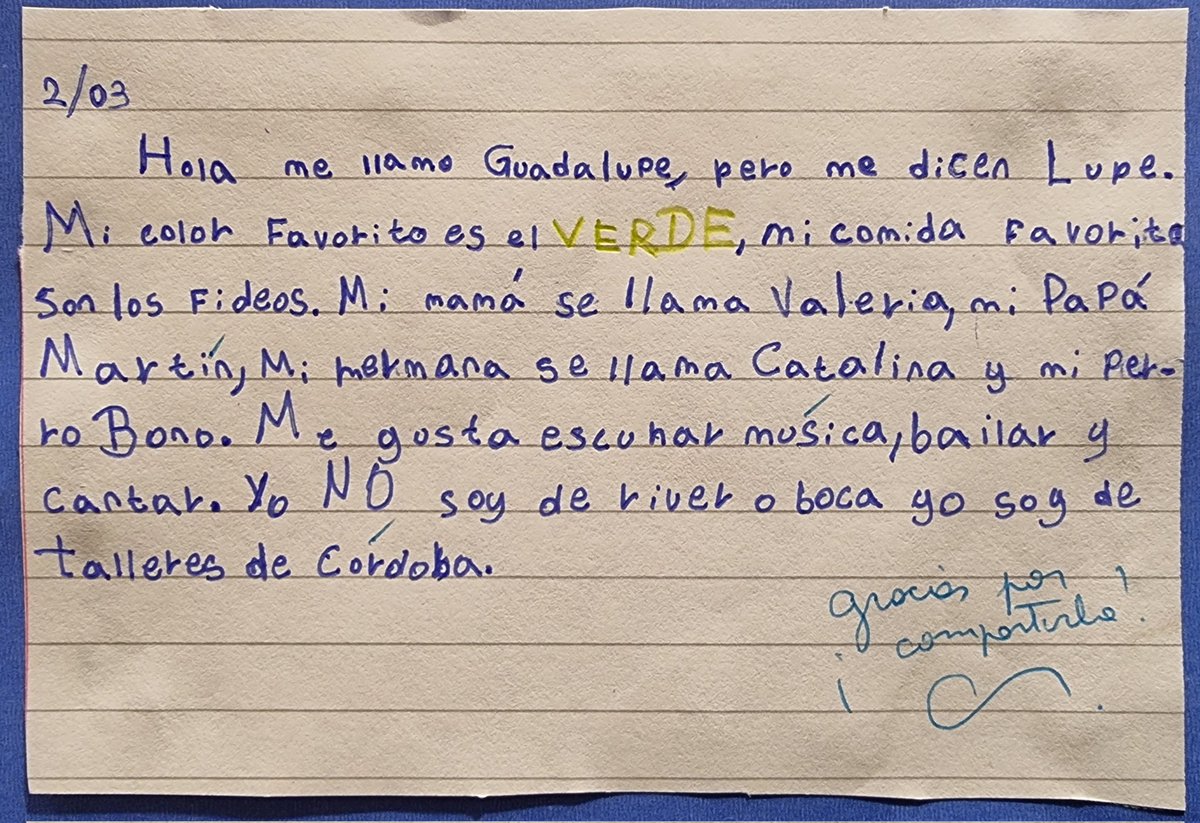 2/03
Hola me llamo Guadalupe, pero me dicen Lupe.
Mi color Favorito es el VERDE, mi comida Favorita
son los Fideos. Mi mamá se llama Valeria, mi PaPá
Martín, Mi hermana se llama Catalina y mi Per-
ro Bono. Me gusta escuhar música, bailar y
cantar. Yo NO soy de river o boca yo soy de
talleres de Córdoba.
gracias por
¡ compartirla!